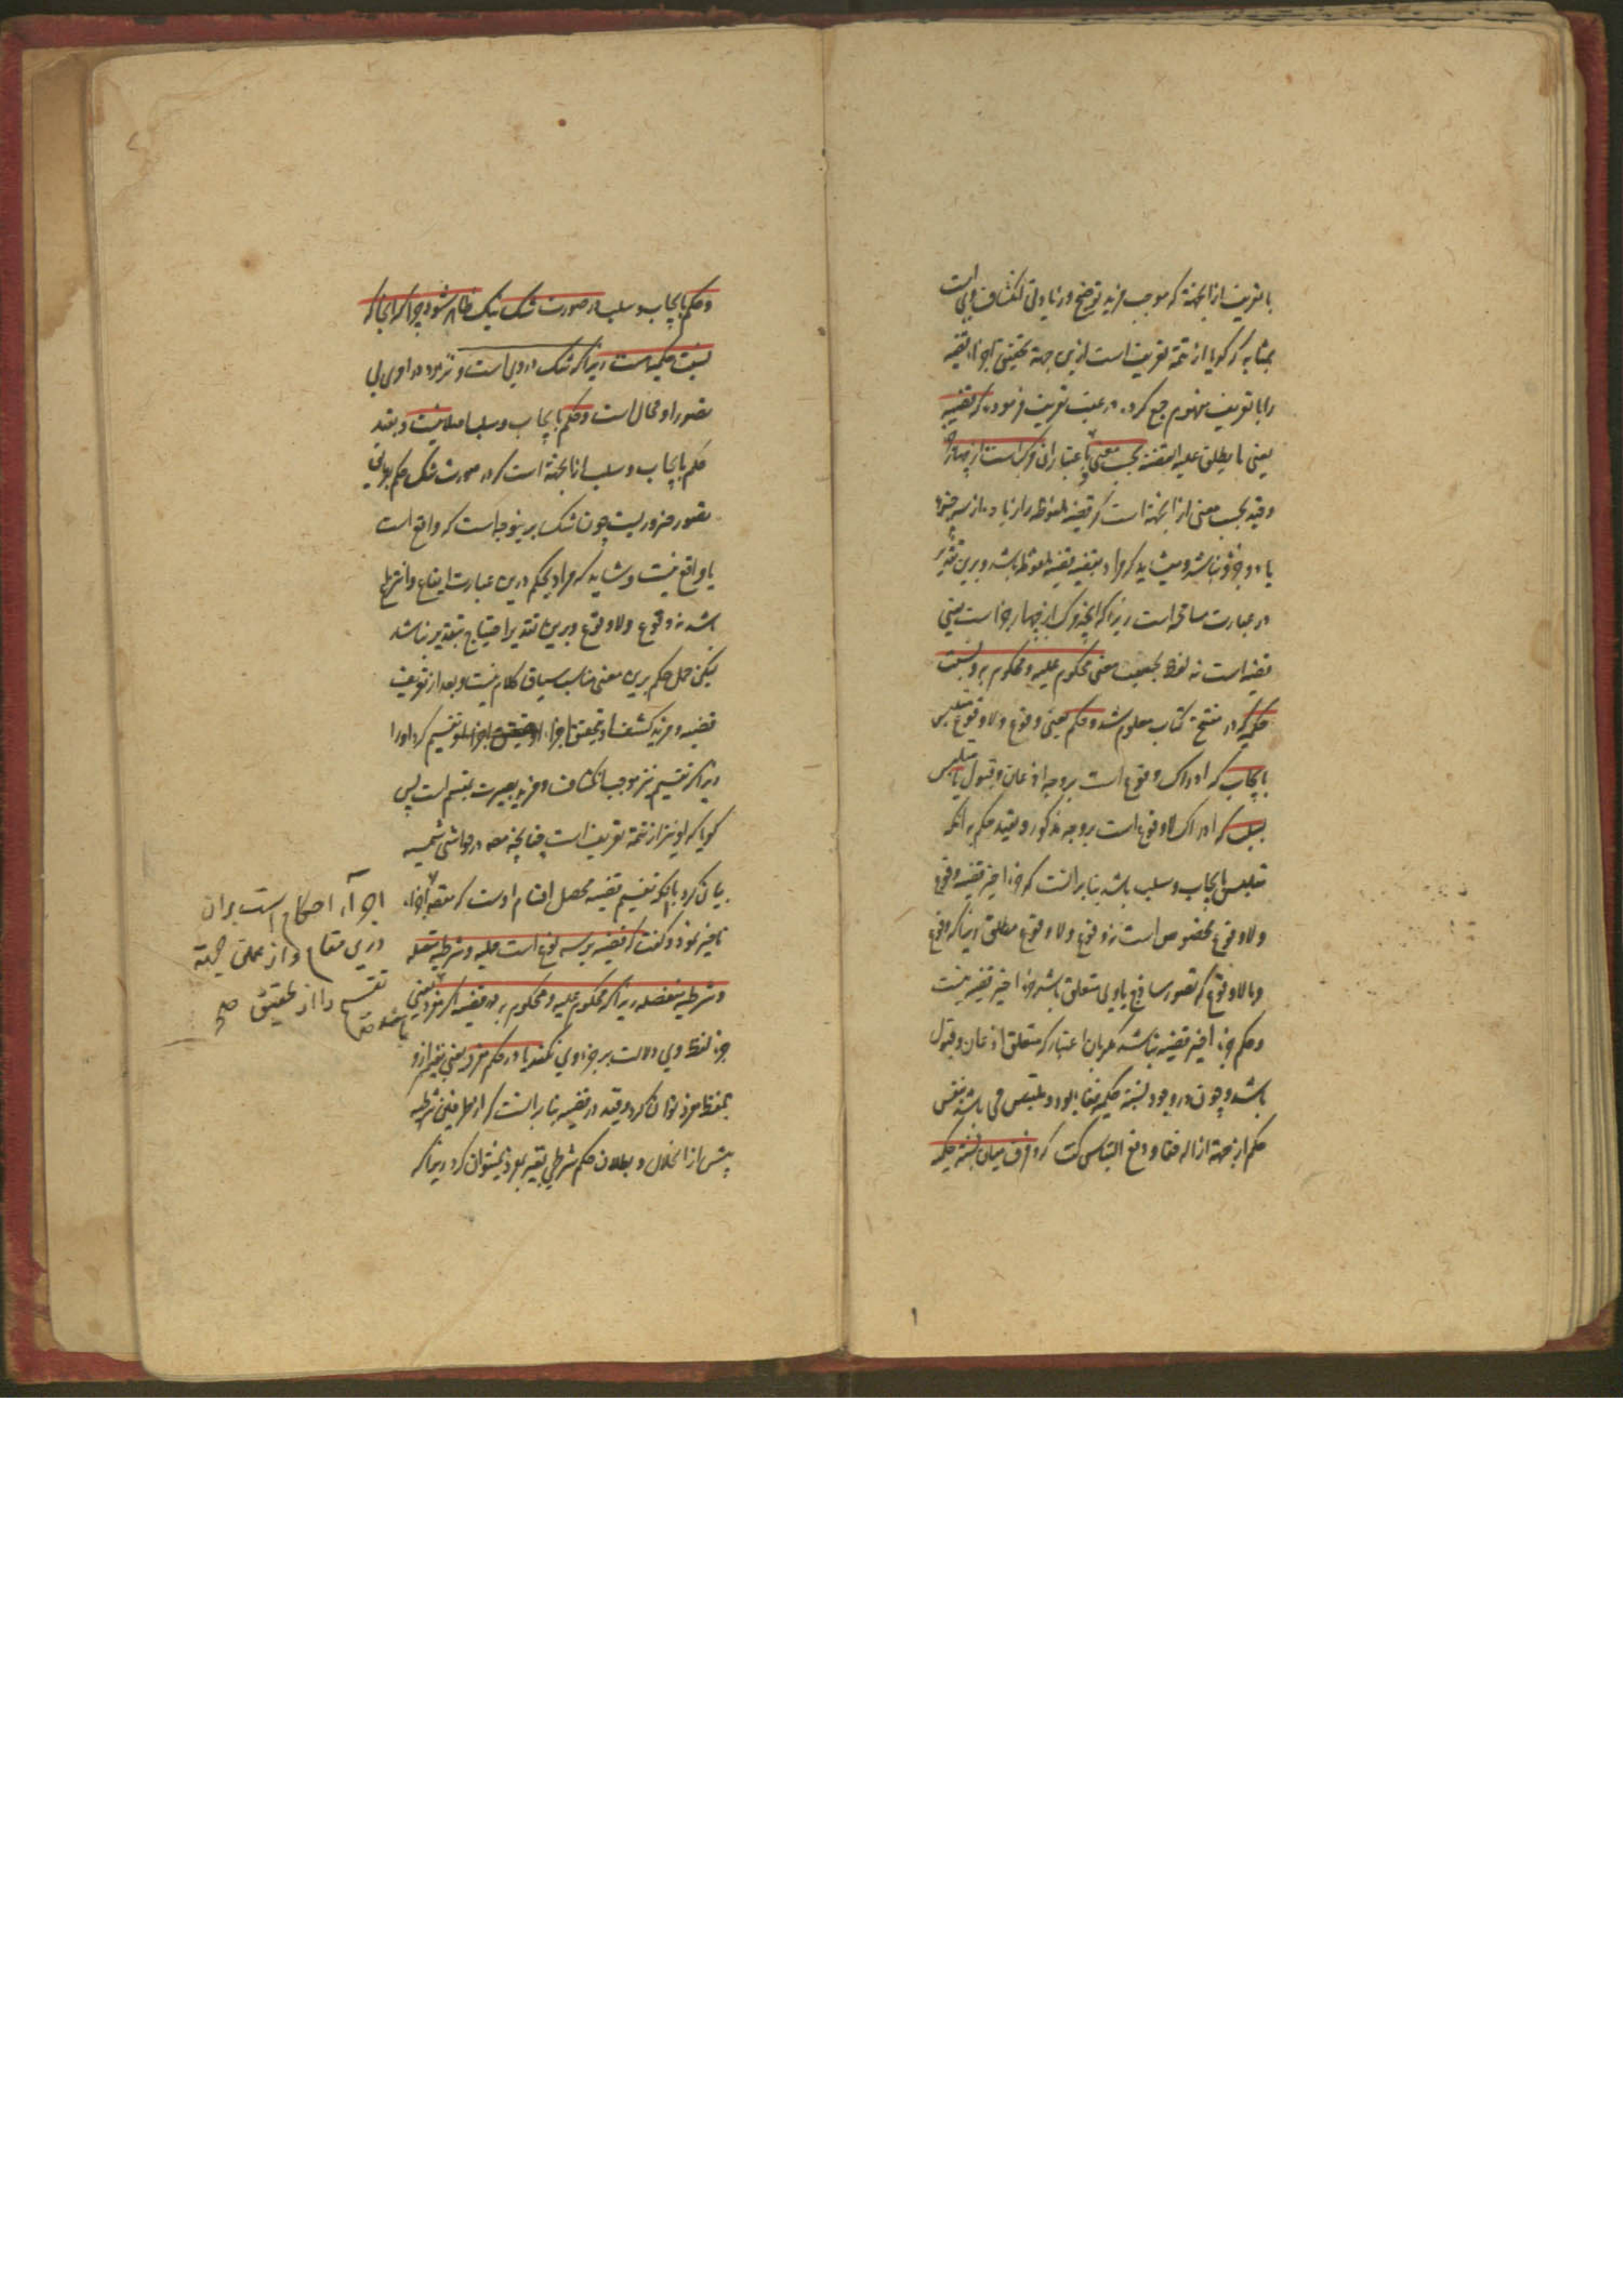 با تعریف از آنجهته که موجب مزید توضیح و زیادتی انکشاف وی است
بمثابه که گویا از تتمه تعریف است ازین جهة تحقیق اجزاء قضیه
را با تعریف مفهوم جمع کرده در عقب تعریف فرموده که قضیه
یعنی ما یطلق علیه القضیة بحسب معنی و باعتبار ان مرکب است از چهار جزء
و قید بحسب معنی از آنجهة است که قضیه ملفوظه را زیاده از سه جزء
یا دو جزو نباشد و میشاید که مراد بقضیه قضیه ملفوظه باشد و برین تقدیر
در عبارت مسامحه است زیرا که آنچه مرکب از چهار جزء است معنی
قضیه است نه لفظ بحقیقت معنی محکوم علیه و محکوم به و نسبت
حکمیه که در مفتتح کتاب معلوم شد و حکم یعنی وقوع ولا وقوع متلبس
بایجاب که ادراک وقوع است بر وجه اذعان و قبول یا متلبس
بسلب که ادراک لا وقوع است بر وجه مذکور و تقیید حکم به آنکه
متلبس بایجاب و سلب باشد بنا بر آنست که جزء اخیر قضیه وقوع
ولا وقوع مخصوص است نه وقوع ولا وقوع مطلق زیرا که وقوع
و یا لا وقوع که تصور ساذج باوی متعلق باشد جزء اخیر قضیه نیست
و حکم جزء اخیر قضیه نباشد مگر بان اعتبار که متعلق اذعان و قبول
باشد و چون در وجود نسبة حکمیه خفا بود و ملتبس می باشد بنفس
حکم از جهة ازاله خفا و دفع التباس گفت که و فرق میان نسبة حکمیه
و حکم بایجاب و سلب در صورت شک نیک ظاهر شود چرا که آنجا که
نسبت حکمیه است زیرا که شک در وی است و تردد در او بی
تصور او محال است و حکم بایجاب و سلب اصلا نیست و بقید
حکم بایجاب و سلب از آنجهته است که در صورت شک حکم بمعنی
تصور ضروریست چون شک برین وجه است که واقع است
یا واقع نیست و شاید که مراد بحکم درین عبارت ایقاع و انتزاع
باشد نه وقوع ولا وقوع و برین تقدیر احتیاج بتقدیر نباشد
لیکن حمل حکم برین معنی مناسب سیاق کلام نیست و بعد از تعریف
قضیه و مزید کشف او بتحقیق اجزاء او تقسیم کرد او را
زیرا که تقسیم نیز موجب انکشاف و مزید بصیرت بمقسم است پس
گویا که او نیز از تتمه تعریف است چنانچه مصه در حواشی شمسیه
بیان کرده بآنکه تقسیم قضیه محصل اقسام اوست که مقصد اجزاء
تاخیر نمود و گفت که قضیه بر سه نوع است حملیه و شرطیه متصله
و شرطیه منفصله زیرا که محکوم علیه و محکوم به در قضیه اگر مفرد یعنی
جزء لفظ وی دلالت بر جزء وی نکند یا در حکم مفرد یعنی تعبیر ازو
بلفظ مفرد توان کرد و قید در قضیه بنا بر آنست که از طرفین شرطیه
پیش از انحلال و بطلان حکم شرطی تعبیر بمفرد نمیتوان کرد زیرا که
اجراء احکام است بران
درین مقام و از عملق جهة
تقسیم را از تحقیق صح
باشد